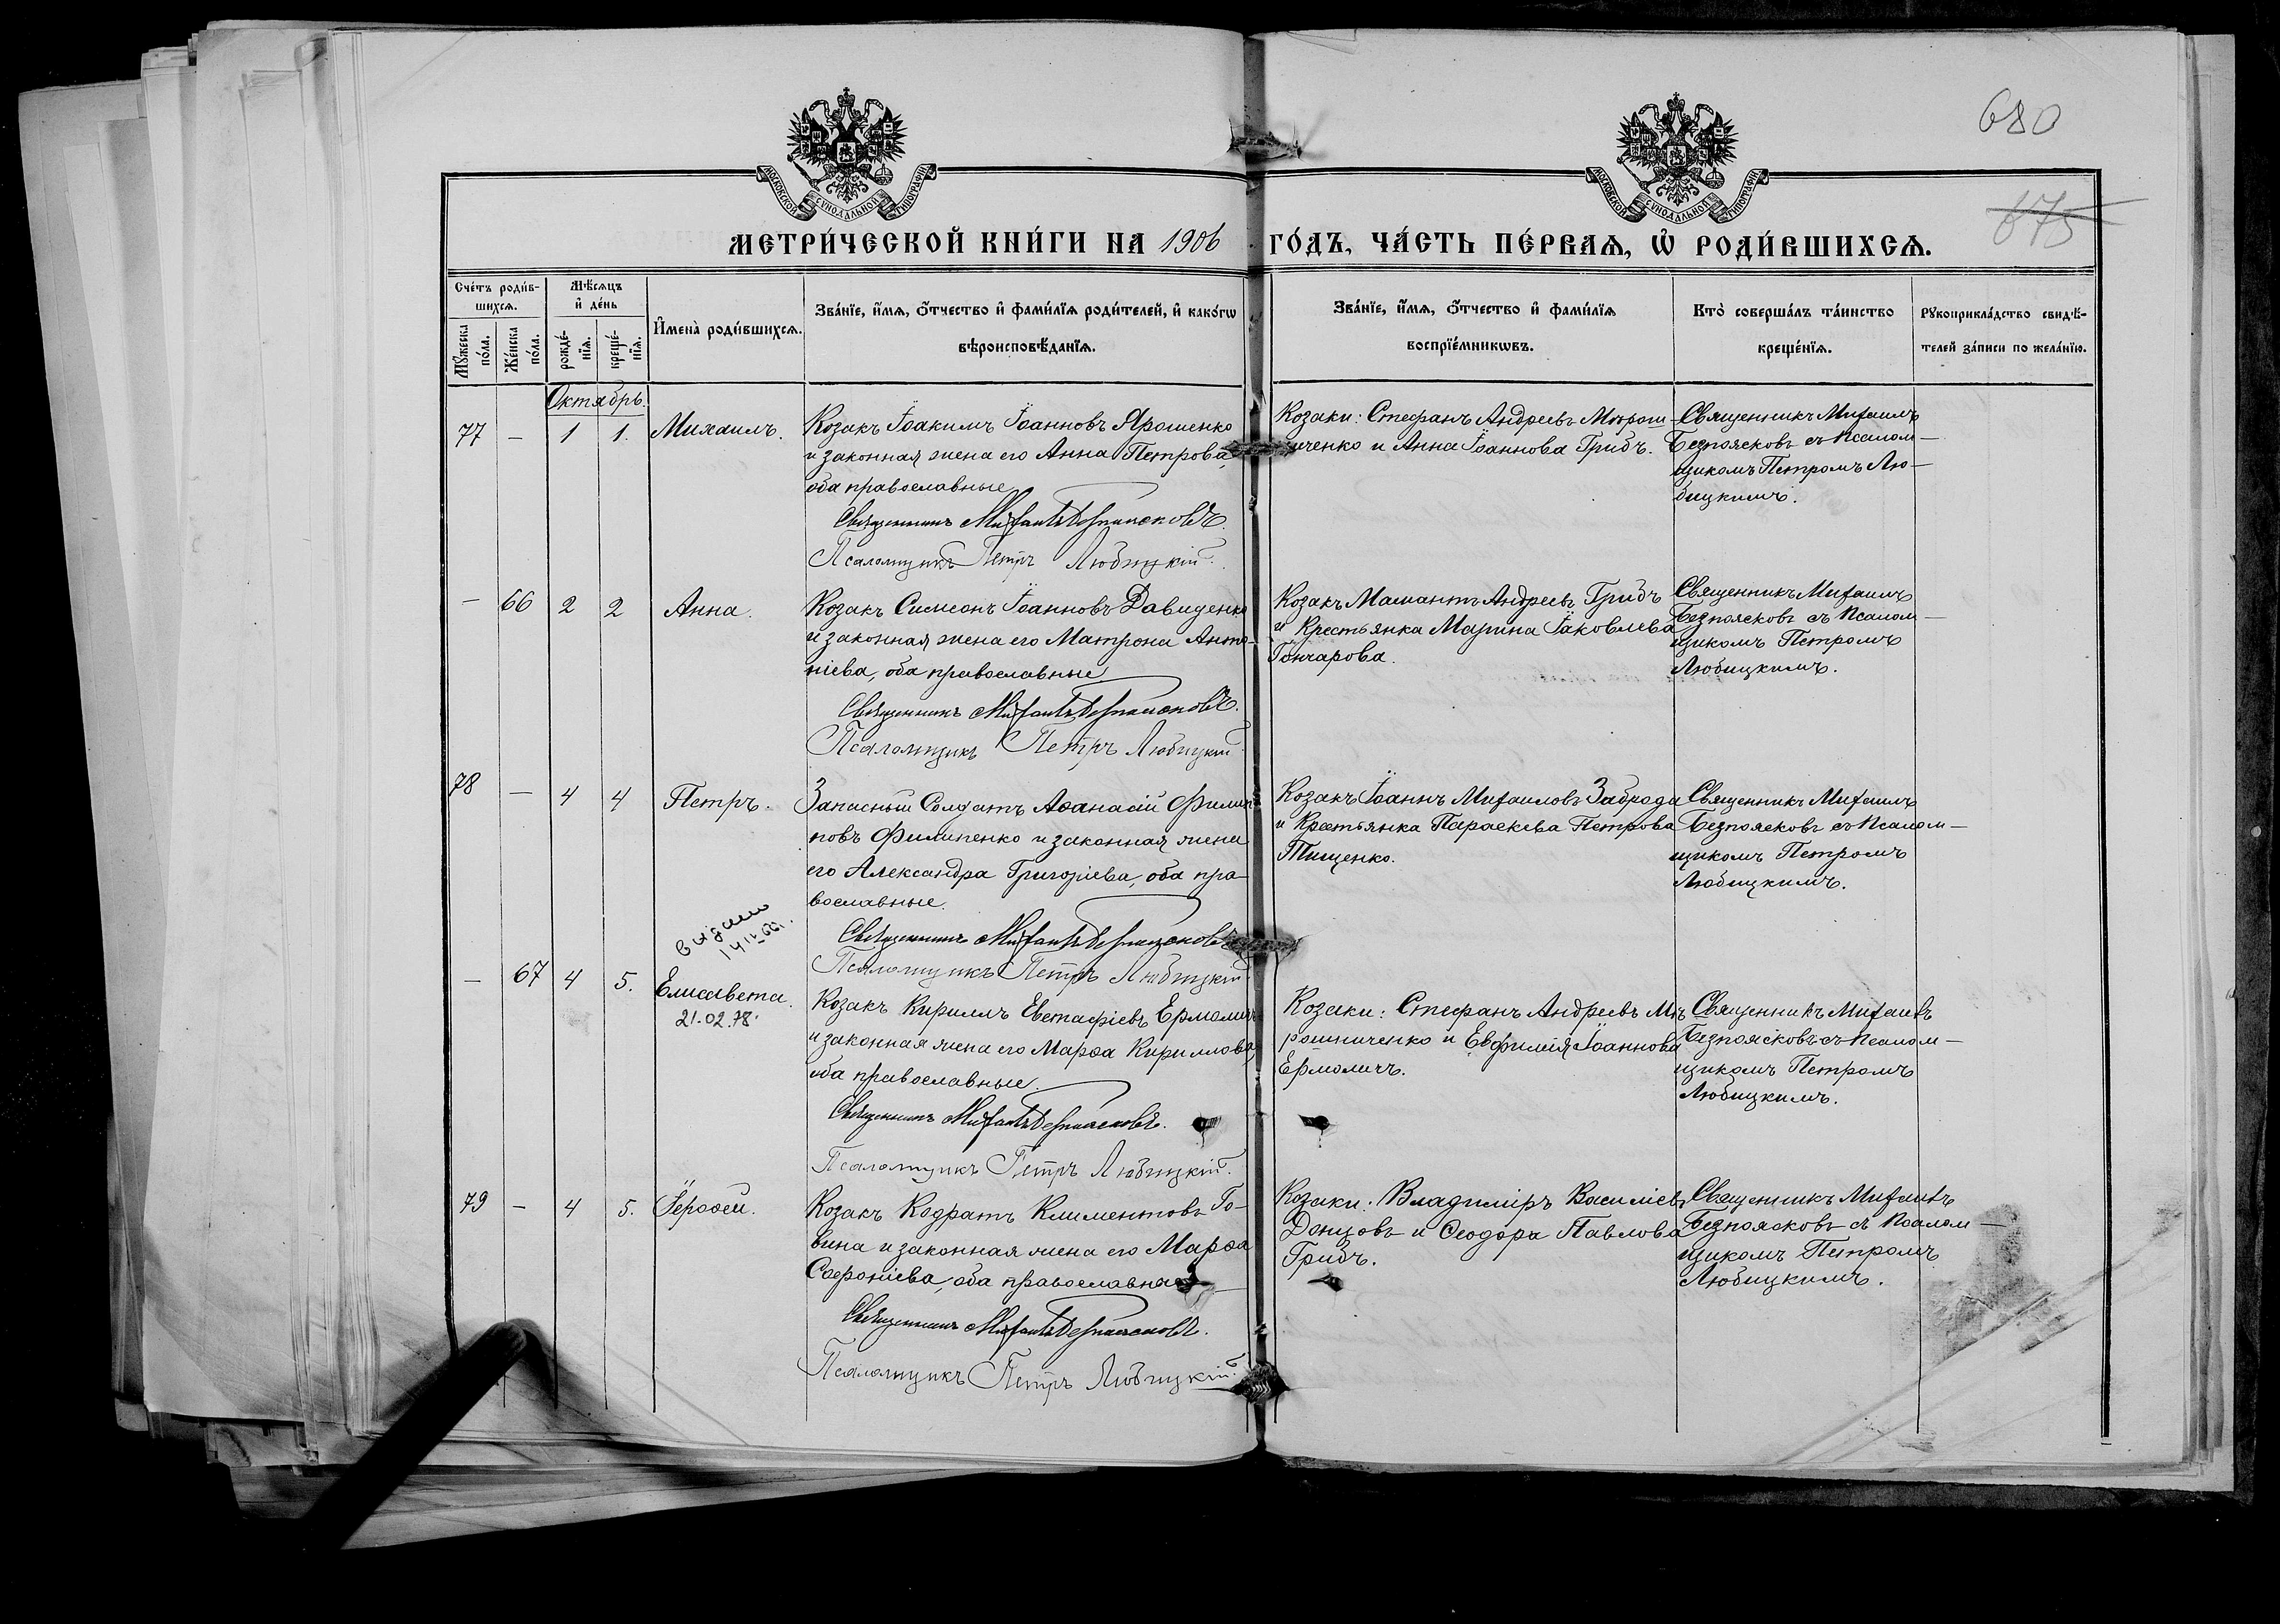 680
675
МОСКОВСКОЙ СѴНОДАЛЬНОЙ ТИПОГРАФІИ
МОСКОВСКОЙ СѴНОДАЛЬНОЙ ТИПОГРАФІИ
МЕТРИ́ЧЕСКОЙ КНИ́ГИ НА 1906 ГО́ДЪ, ЧА́СТЬ ПЕ́РВАѦ, Ѡ РОДИ́ВШИХСѦ.
Сче́тъ роди́в-
шихсѧ.
Мꙋ́жеска по́ла.
Же́нска по́ла.
Мѣ́сѧцъ
и҆ де́нь
рожде́-
нїѧ.
креще́-
нїѧ.
И҆мена̀ роди́вшихсѧ.
Зва́нїе, и҆́мѧ, ѻ҆́тчество и҆ фами́лїѧ роди́телей, и҆ како́гѡ
вѣроисповѣ́данїѧ.
Зва́нїе, и҆́мѧ, ѻ҆́тчество и҆ фами́лїѧ
воспрїе́мникѡвъ.
Кто̀ соверша́лъ та́инство
креще́нїѧ.
Рꙋкоприкла́дство свидѣ́-
телей за́писи по жела́нїю.
Октябрь.
77 — 1 1. Михаилъ.
Козакъ Іоакимъ Іоанновъ Ярошенко
и законная жена его Анна Петрова,
оба православные
Священникъ Михаилъ Безпоясковъ.
Псаломщикъ Петръ Любицкій.
Козаки: Стефанъ Андреевъ Мірош-
ниченко и Анна Іоаннова Грибъ.
Священникъ Михаилъ
Безпоясковъ съ Псалом-
щикомъ Петромъ Лю-
бицкимъ.
— 66 2 2 Анна.
Козакъ Симеонъ Іоанновъ Давиденко
и законная жена его Матрона Анто-
ніева, оба православные
Священникъ Михаилъ Безпоясковъ.
Псаломщикъ Петръ Любицкій
Козакъ Мамантъ Андреевъ Грибъ
и Крестьянка Марина Іаковлева
Гончарова.
Священникъ Михаилъ
Безпоясковъ съ Псалом-
щикомъ Петромъ
Любицкимъ.
78 — 4 4 Петръ.
Запасный Солдатъ Аѳанасій Филип-
повъ Филипенко и законная жена
его Александра Григоріева, оба пра-
вославные.
Священникъ Михаилъ Безпоясковъ
Псаломщикъ Петръ Любицкій
Козакъ Іоаннъ Михаиловъ Заброда
и Крестьянка Параскева Петрова
Тищенко.
Священникъ Михаилъ
Безпоясковъ съ Псалом-
щикомъ Петромъ
Любицкимъ.
видано
— 67 4 5. Елисавета.
21.02.78.
Козакъ Кириллъ Евстафіевъ Ермоличъ
и законная жена его Марѳа Кириллова,
оба православные.
Священникъ Михаилъ Безпоясковъ.
Псаломщикъ Петръ Любицкій.
Козаки: Стефанъ Андреевъ Мі-
рошниченко и Евфимія Іоаннова
Ермоличъ.
Священникъ Михаилъ
Безпоясковъ съ Псалом-
щикомъ Петромъ
Любицкимъ.
79 — 4 5. Іероѳей.
Козакъ Кодратъ Климентовъ Го-
вина и законная жена его Марѳа
Софроніева, оба православные
Священникъ Михаилъ Безпоясковъ.
Псаломщикъ Петръ Любицкій.
Козаки: Владиміръ Василіевъ
Донцовъ и Ѳеодора Павлова
Грибъ.
Священникъ Михаилъ
Безпоясковъ съ Псалом-
щикомъ Петромъ
Любицкимъ.